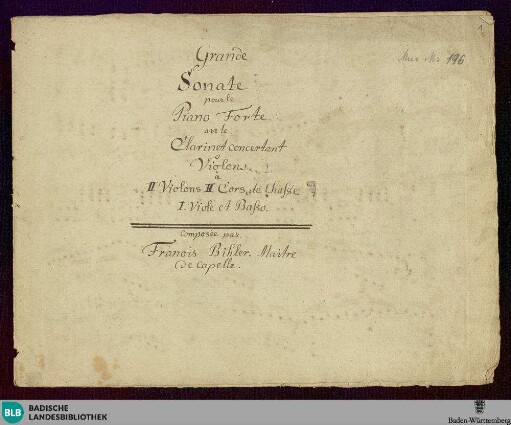 1
Mus. Ms. 196
Grande
Sonate
pour le
Piano Forte
avec le
Clarinet concertant
o
Violon
a
II Violons II Cors de Chasse
I. Viole et Basso.
Composée par
Franois Bihler. Maitre
de Capelle.
BLB BADISCHE
LANDESBIBLIOTHEK
Baden-Württemberg